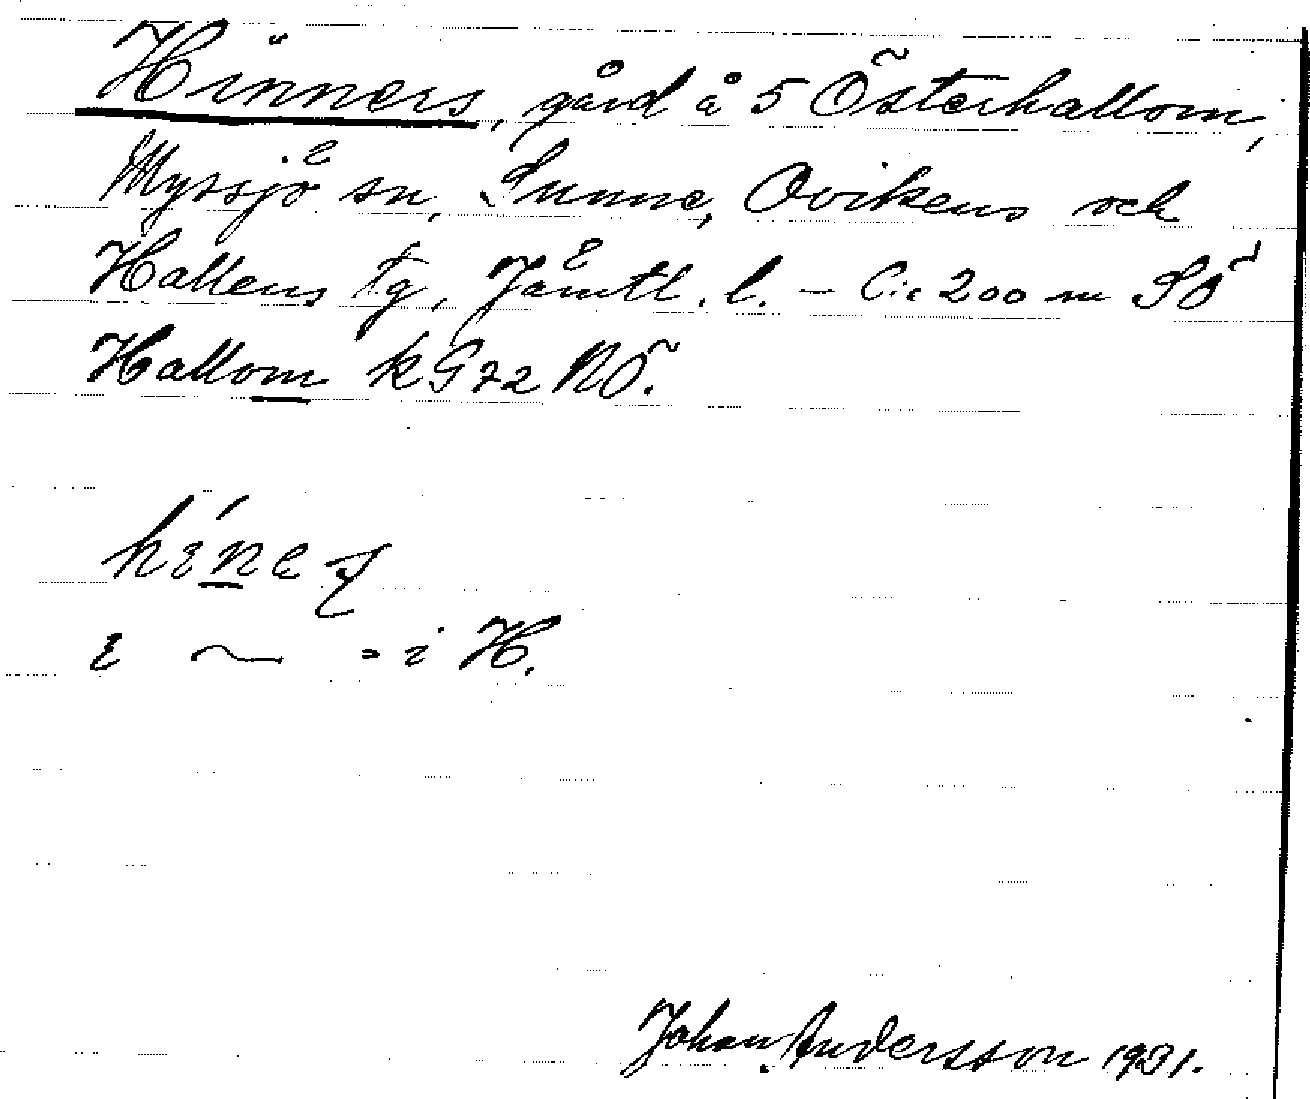 Hinners, gård å 5 Österhallom,
Myssjö sn, Sunne, Ovikens och
Hallens tg, Jämtl. l. – C:a 200 m SÖ
Hallom k G72 NÖ.
i ~ = i H.
Johan Andersson 1931.